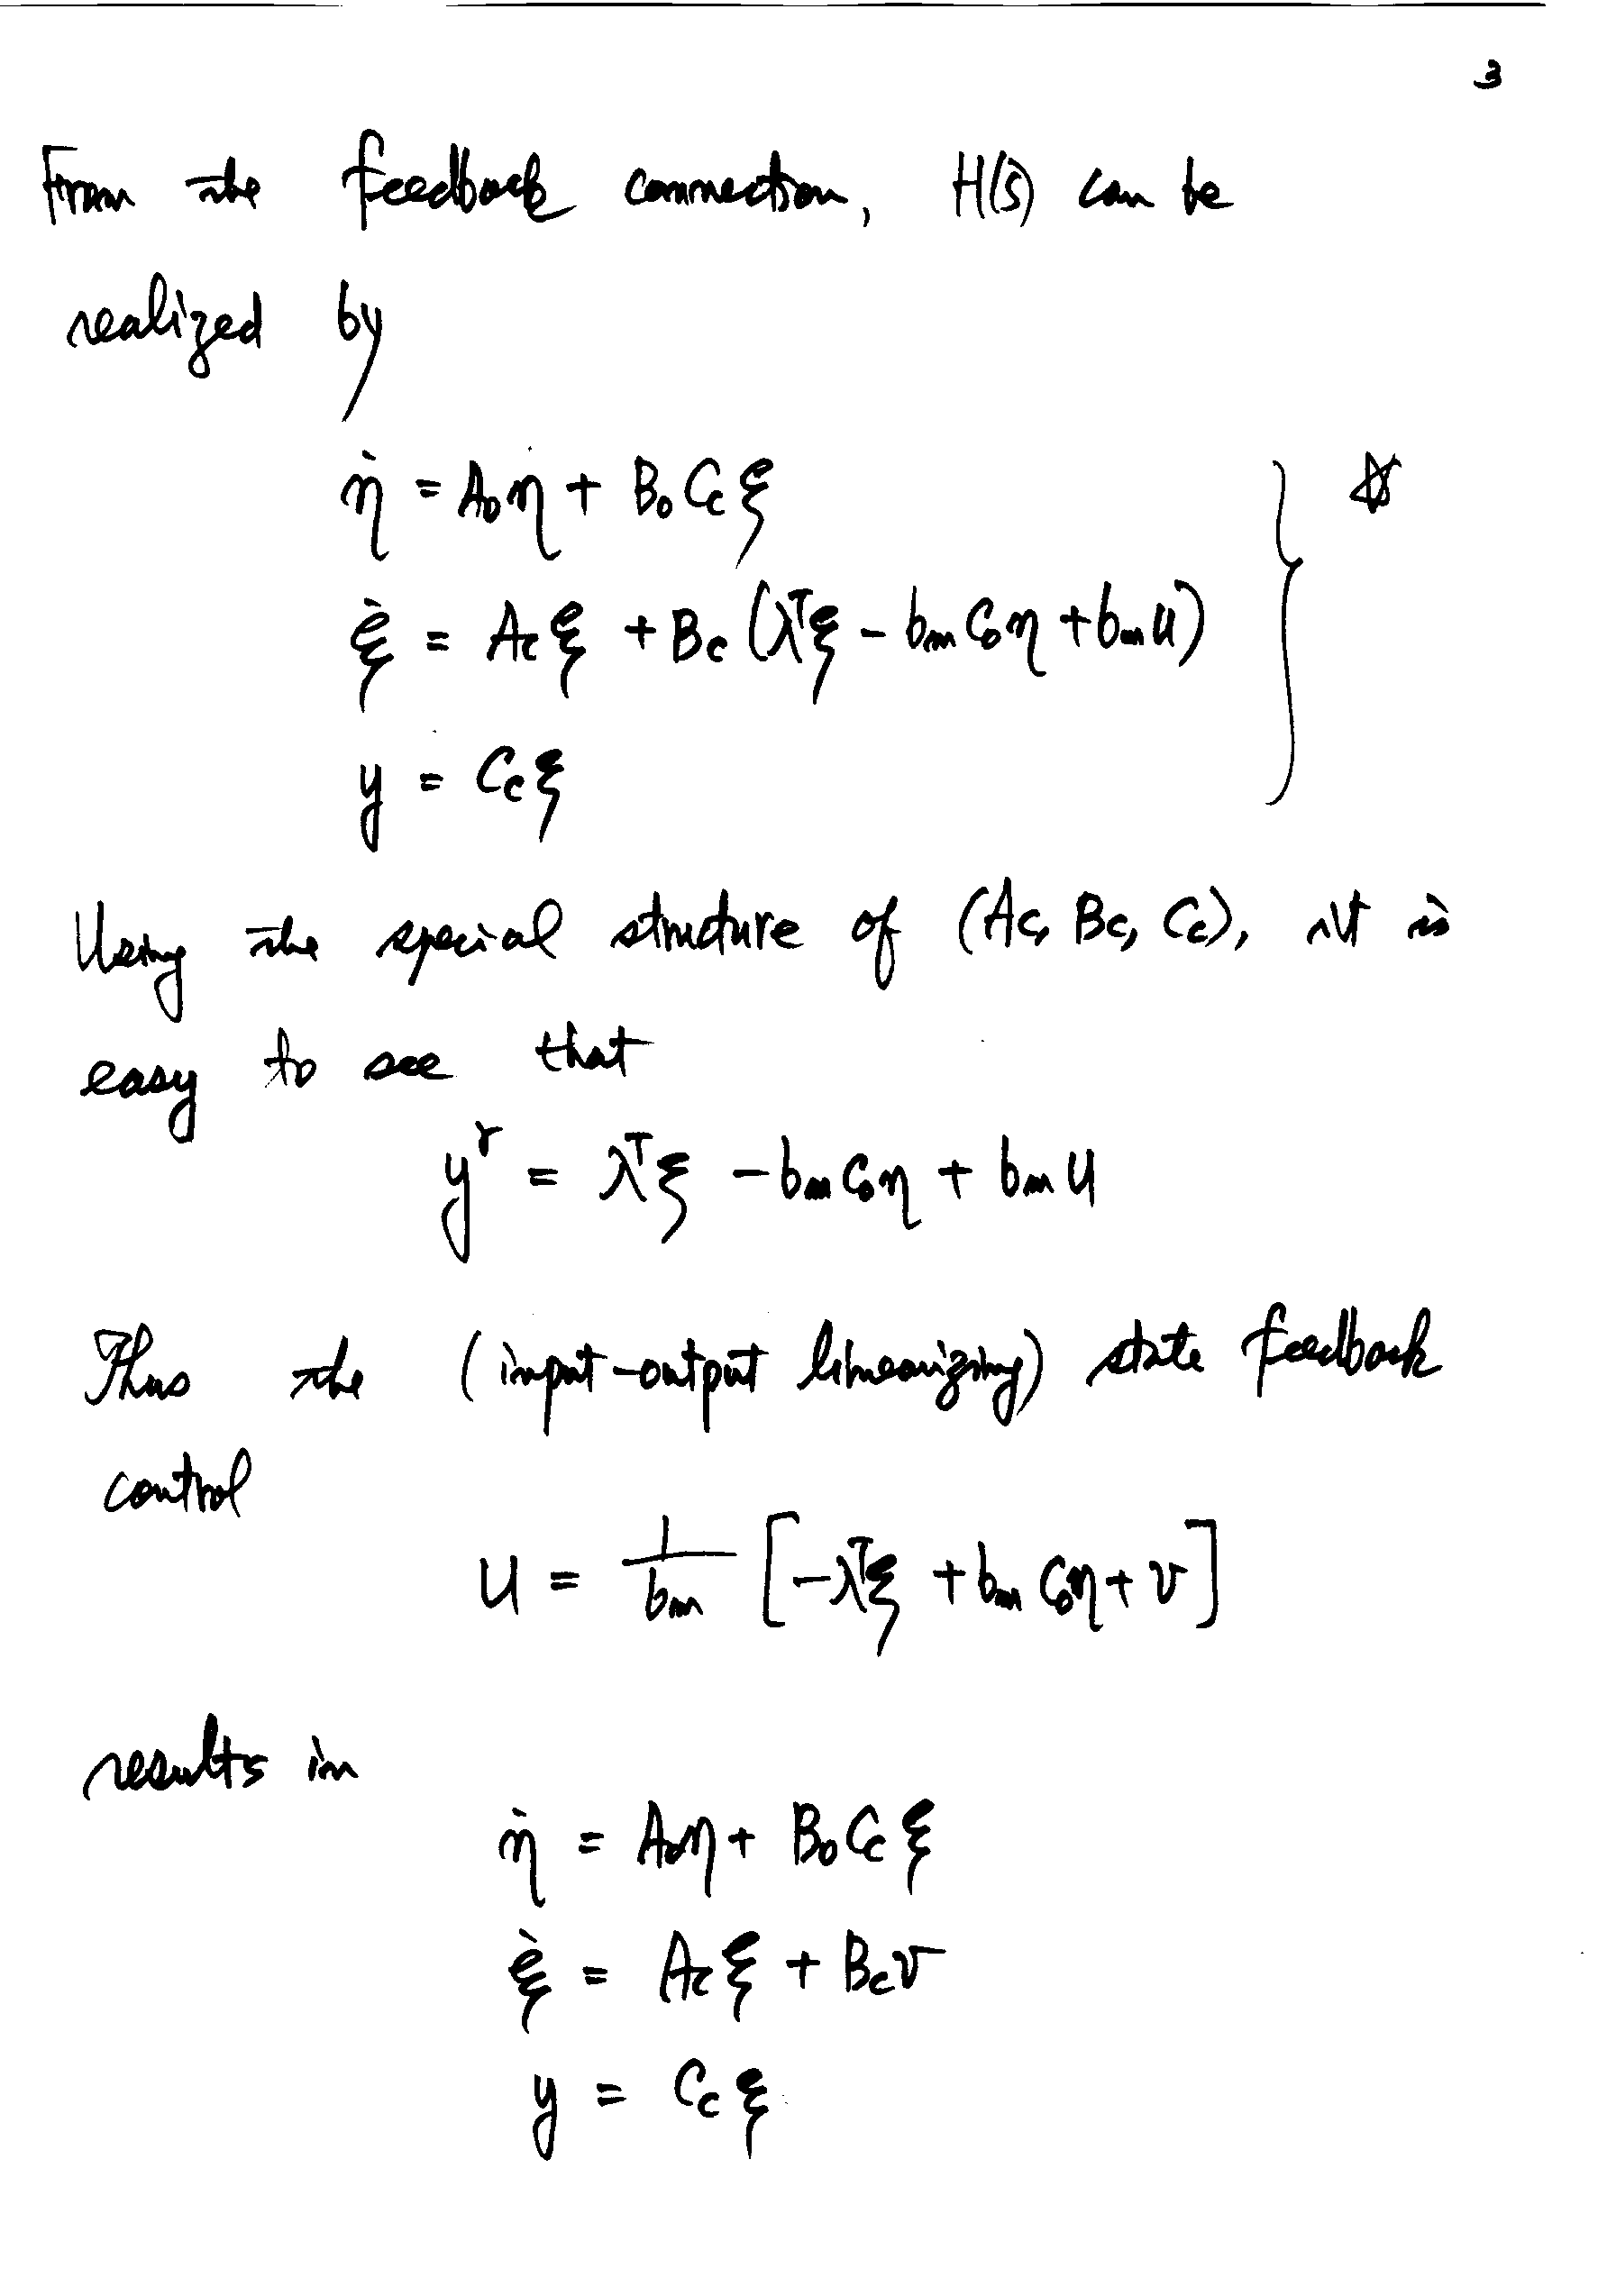 3
From the feedback connection, H(s) can be
realized by
η̇ = A₀η + B₀C_cξ
ξ̇ = A_cξ + B_c(λᵀξ - b_m C₀η + b_m u) } ☆
y = C_cξ
Using the special structure of (A_c, B_c, C_c), it is
easy to see that
yʳ = λᵀξ - b_m C₀η + b_m u
Thus the (input-output linearizing) state feedback
control
u = 1/b_m [-λᵀξ + b_m C₀η + v]
results in
η̇ = A₀η + B₀C_cξ
ξ̇ = A_cξ + B_c v
y = C_cξ